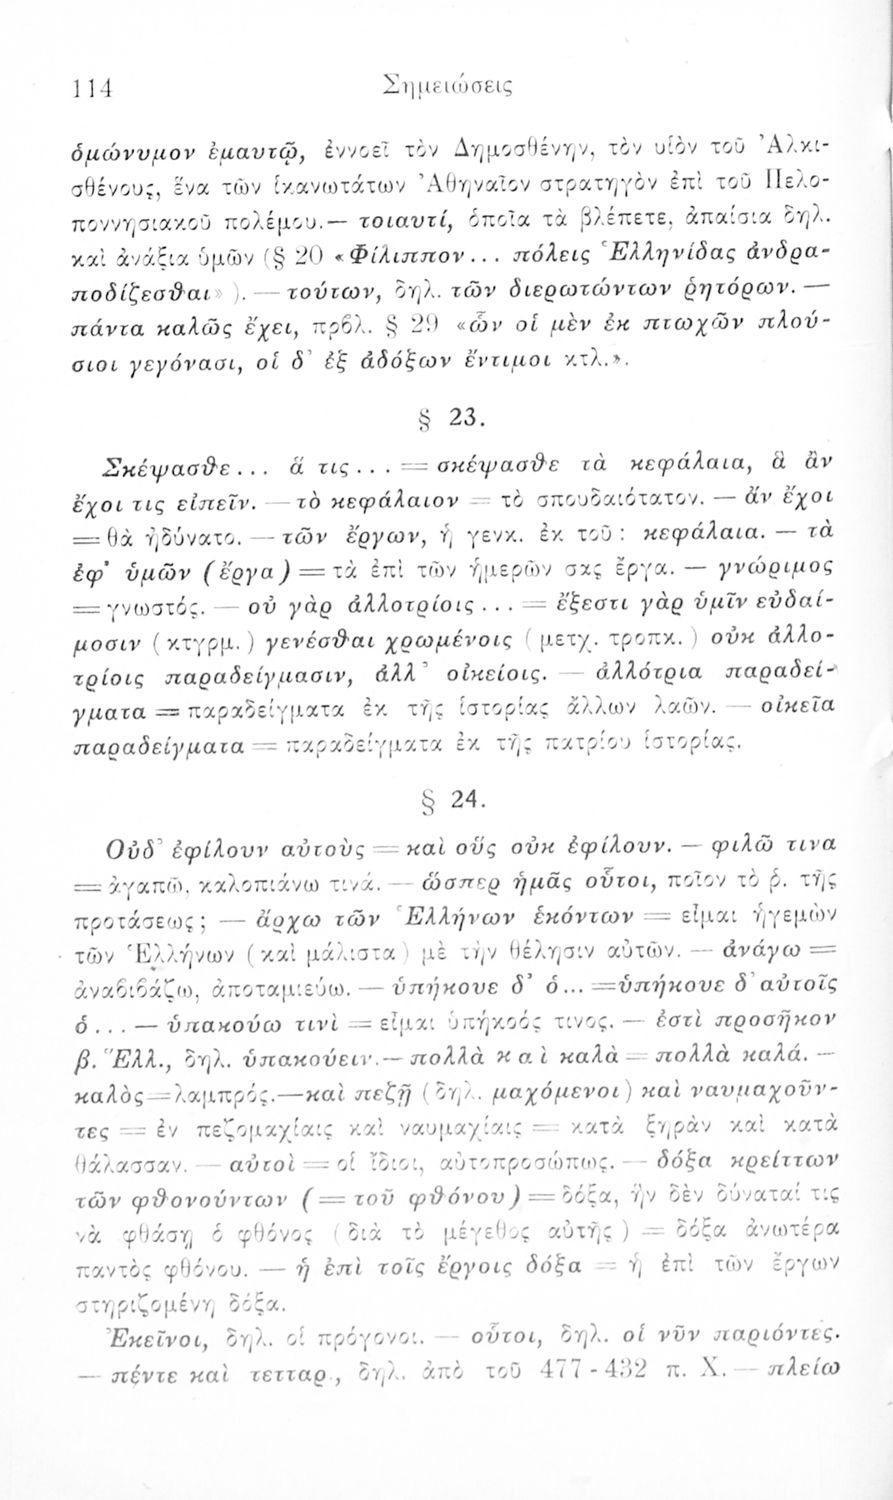 114 Σημειώσεις
ὁμώνυμον ἐμαυτῷ, ἐννοεῖ τὸν Δημοσθένην, τὸν υἱὸν τοῦ Ἀλκι-
σθένους, ἕνα τῶν ἱκανωτάτων Ἀθηναῖον στρατηγὸν ἐπὶ τοῦ Πελο-
ποννησιακοῦ πολέμου.— τοιαυτί, ὁποῖα τὰ βλέπετε, ἀπαίσια δηλ.
καὶ ἀνάξια ὑμῶν (§ 20 «Φίλιππον... πόλεις Ἑλληνίδας ἀνδρα-
ποδίζεσθαι» ). — τούτων, δηλ. τῶν διερωτώντων ῥητόρων. —
πάντα καλῶς ἔχει, πρβλ. § 29 «ὧν οἱ μὲν ἐκ πτωχῶν πλού-
σιοι γεγόνασι, οἱ δ' ἐξ ἀδόξων ἔντιμοι κτλ.».
§ 23.
Σκέψασθε... ἅ τις... = σκέψασθε τὰ κεφάλαια, ἃ ἂν
ἔχοι τις εἰπεῖν. — τὸ κεφάλαιον = τὸ σπουδαιότατον. — ἄν ἔχοι
= θὰ ἠδύνατο. — τῶν ἔργων, ἡ γενκ. ἐκ τοῦ : κεφάλαια. — τὰ
ἐφ' ὑμῶν (ἔργα) = τὰ ἐπὶ τῶν ἡμερῶν σας ἔργα. — γνώριμος
= γνωστός. — οὐ γὰρ ἀλλοτρίοις... = ἔξεστι γὰρ ὑμῖν εὐδαί-
μοσιν (κτγρμ.) γενέσθαι χρωμένοις (μετχ. τροπκ.) οὐκ ἀλλο-
τρίοις παραδείγμασιν, ἀλλ' οἰκείοις. — ἀλλότρια παραδεί-
γματα = παραδείγματα ἐκ τῆς ἱστορίας ἄλλων λαῶν. — οἰκεῖα
παραδείγματα = παραδείγματα ἐκ τῆς πατρίου ἱστορίας.
§ 24.
Οὐδ' ἐφίλουν αὐτοὺς = καὶ οὓς οὐκ ἐφίλουν. — φιλῶ τινα
= ἀγαπῶ, καλοπιάνω τινά. — ὥσπερ ἡμᾶς οὗτοι, ποῖον τὸ ῥ. τῆς
προτάσεως; — ἄρχω τῶν Ἑλλήνων ἑκόντων = εἶμαι ἡγεμὼν
τῶν Ἑλλήνων (καὶ μάλιστα) μὲ τὴν θέλησιν αὐτῶν. — ἀνάγω =
ἀναβιβάζω, ἀποταμιεύω. — ὑπήκουε δ' ὁ... = ὑπήκουε δ' αὐτοῖς
ὁ... — ὑπακούω τινὶ = εἶμαι ὑπήκοός τινος. — ἐστὶ προσῆκον
β. Ἕλλ., δηλ. ὑπακούειν.— πολλὰ καὶ καλὰ = πολλὰ καλά. —
καλὸς = λαμπρός.—καὶ πεζῇ (δηλ. μαχόμενοι) καὶ ναυμαχοῦν-
τες = ἐν πεζομαχίαις καὶ ναυμαχίαις = κατὰ ξηρὰν καὶ κατὰ
θάλασσαν. — αὐτοὶ = οἱ ἴδιοι, αὐτοπροσώπως. — δόξα κρείττων
τῶν φθονούντων (= τοῦ φθόνου) = δόξα, ἣν δὲν δύναταί τις
νὰ φθάσῃ ὁ φθόνος (διὰ τὸ μέγεθος αὐτῆς) = δόξα ἀνωτέρα
παντὸς φθόνου. — ἡ ἐπὶ τοῖς ἔργοις δόξα = ἡ ἐπὶ τῶν ἔργων
στηριζομένη δόξα.
Ἐκεῖνοι, δηλ. οἱ πρόγονοι. — οὗτοι, δηλ. οἱ νῦν παριόντες.
— πέντε καὶ τετταρ., δηλ. ἀπὸ τοῦ 477 - 432 π. Χ. — πλείω